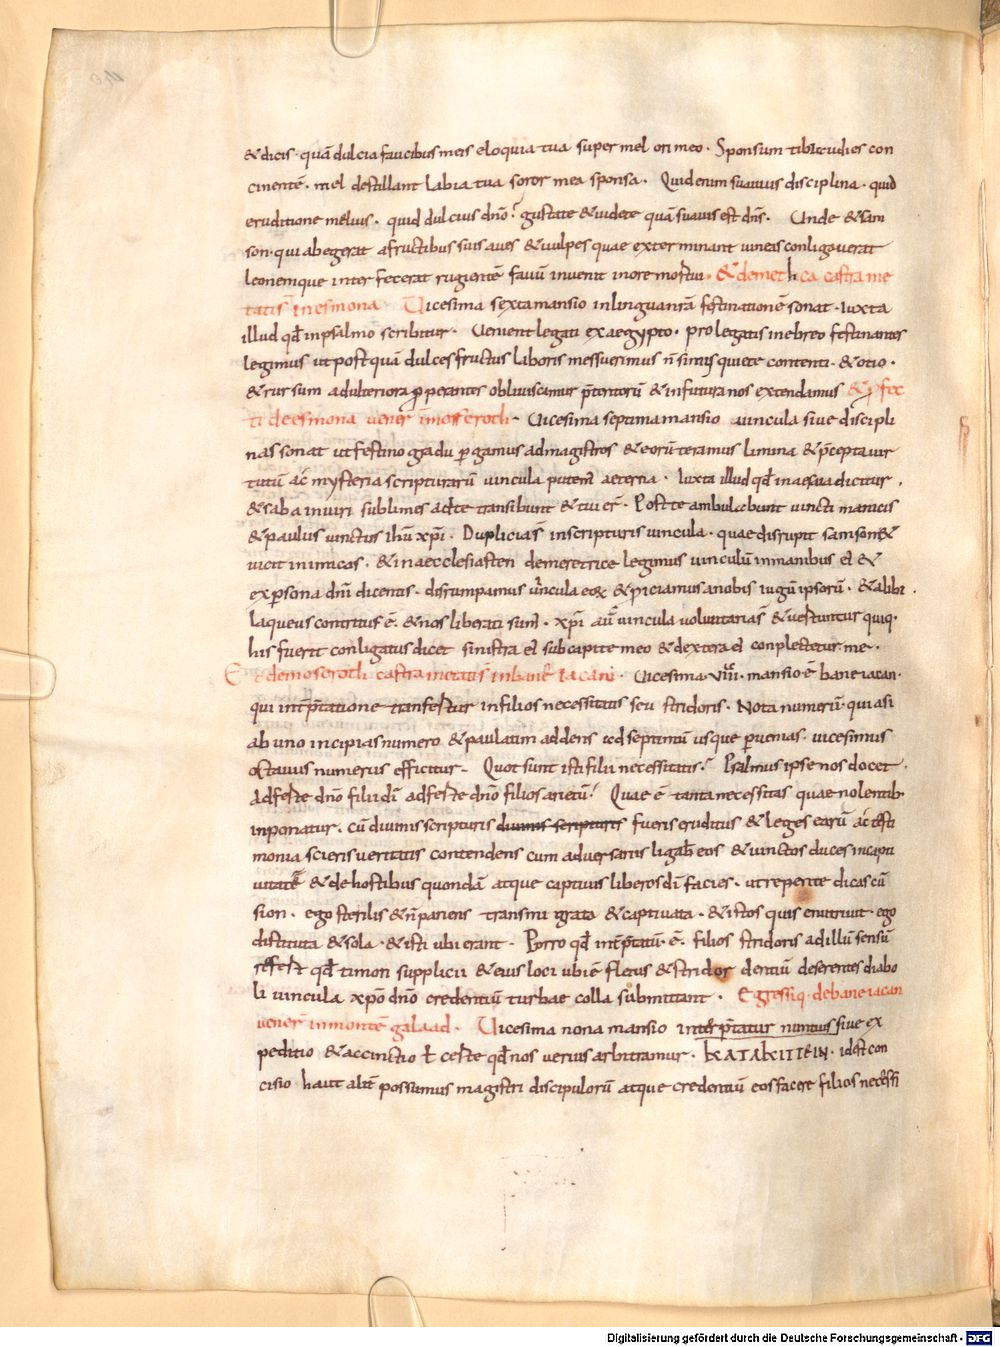 & dicis · quā dulcia faucibus meis eloquia tua super mel ori meo · Sponsum tibi audies con
cinentē · mel destillant labia tua soror mea sponsa · Quid enim suauius disciplina · quid
eruditione melius · quid dulcius dn̄o? gustate & uidete quā suauis est dn̄s · Unde & sam
son · qui abegerat a fructibus suis aues & uulpes quae exterminant uineas conligauerat
leonemque interfecerat rugientē fauū inuenit in ore mortui · & demethca castra me
tatis̄ in esmona · Uicesima sexta mansio in linguā nrā festinationē sonat · Iuxta
illud qđ in psalmo scribitur · Uenient legati ex aegypto · pro legatis in ebreo festinantes
legimus ut postquā dulces fructus laboris messuerimus n̄ simus quiete contenti · & otio ·
& rursum ad ulteriora ꝓperantes obliuiscamur p̄teritorū & in futura nos extendamus & ꝓfec
ti de esmona uener̄ in mosseroth · Uicesima septima mansio uincula siue discipli
nas sonat ut festino gradu ꝑgamus ad magistros & eorū teramus limina & p̄cepta uir
tutū ac mysteria scripturarū uincula putem̄ aeterna · Iuxta illud qđ in aesaia dicitur ·
& saba in uiri sublimes ad te transibunt & tui er̄ · Post te ambulabunt uincti manicis
& paulus uinctus ihū xp̄i · Duplicia s̄ in scripturis uincula · quae disrupit samson &
uicit inimicos · & in aecclesiasten de meretrice legimus uinculū in manibus ei &
ex ꝑsona dn̄i dicentis · disrumpamus uincula eoꝝ & ꝓiciamus a nobis iugū ipsorū · & alibi ·
laqueus contritus ē · & nos liberati sum̄ · xp̄i aū uincula uoluntaria s̄ & uertuntur quiq·
his fuerit conligatus dicet sinistra ei sub capite meo & dextera ei conplectetur me ·
Et de moseroth castra metatis̄ in bane Iacan · Uicesima · VIII · mansio ē bane iacan ·
qui int̄p̄tatione transfertur in filios necessitatis seu stridoris · Nota numerū · qui a si
ab uno incipias numero & paulatim addens ad septimū usque ꝑuenias · uicesimus
octauus numerus efficitur · Quot sunt isti filii necessitatis? Psalmus ipse nos docet ·
Adferte dn̄o filii dī adferte dn̄o filios arietū? Quae ē tanta necessitas quae nolentib·
inponatur · cū diuinis scripturis diuinis scripturis fueris eruditus & leges earū ac testi
monia scieris ueritatis contendens cum aduersariis ligab̄ eos & uinctos duces in capti
uitatē & de hostibus quondā atque captiuis liberos dī facies · ut reperite dicas cū
sion · ego sterilis & n̄ pariens transmigrata & captiuata · & istos quis enutriuit · ego
distituta & sola · & isti ubi erant · Porro qđ int̄p̄tatū · ē · filios stridoris ad illū sensū
refert qđ timori supplicii & eius loci ubi ē fletus & stridor dentiū deserentes diabo
li uincula xp̄o dn̄o credentiū turbae colla submittant · Egressiq· de bane iacan
uener̄ in montē galaad · Uicesima nona mansio interp̄tatur nuntius siue ex
peditio & accinctio ł certe qđ nos uerius arbitramur · ΚΑΤΑΚΙΤΤΕΙΝ · id est con
cisio haut alit̄ possumus magistri discipulorū atque credentiū eos facere filios necessi
Digitalisierung gefördert durch die Deutsche Forschungsgemeinschaft - DFG